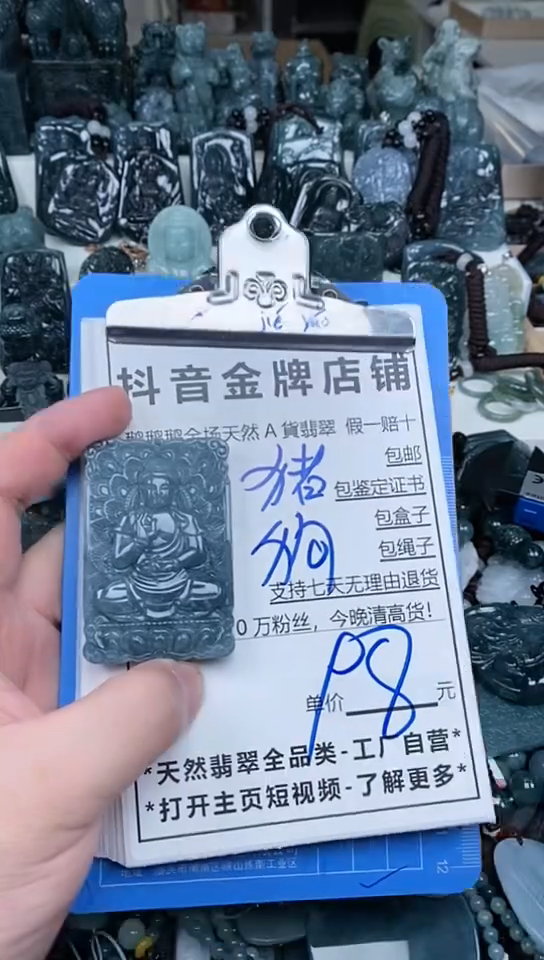 抖音金牌店铺
鹅鹅鹅全场天然A貨翡翠 假一赔十
包邮
猪
包鉴定证书
包盒子
狗
包绳子
支持七天无理由退货
0万粉丝，今晚清高货！
单价 P8 元
*天然翡翠全品类-工厂自营*
*打开主页短视频-了解更多*
12